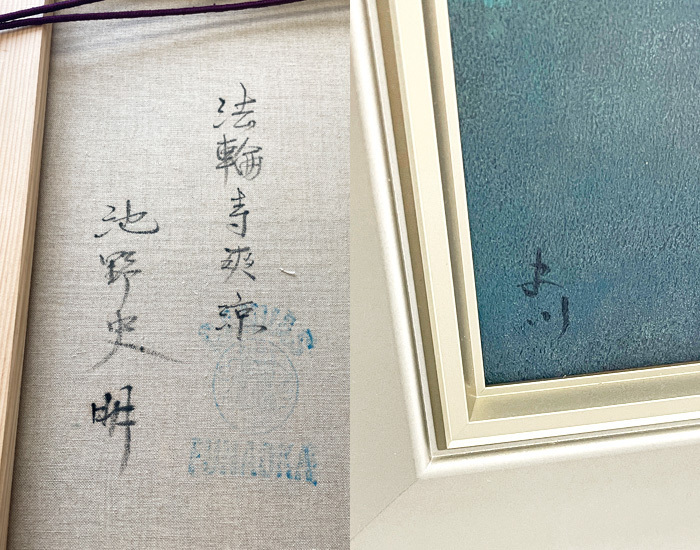 法輪寺爽涼
池野史明
FUNAOKA